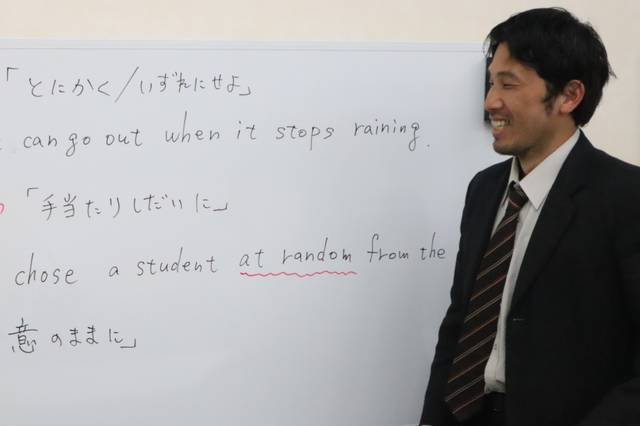 「とにかく/いずれにせよ」
can go out when it stops raining.
「手当たりしだいに」
chose a student at random from the
意のままに」